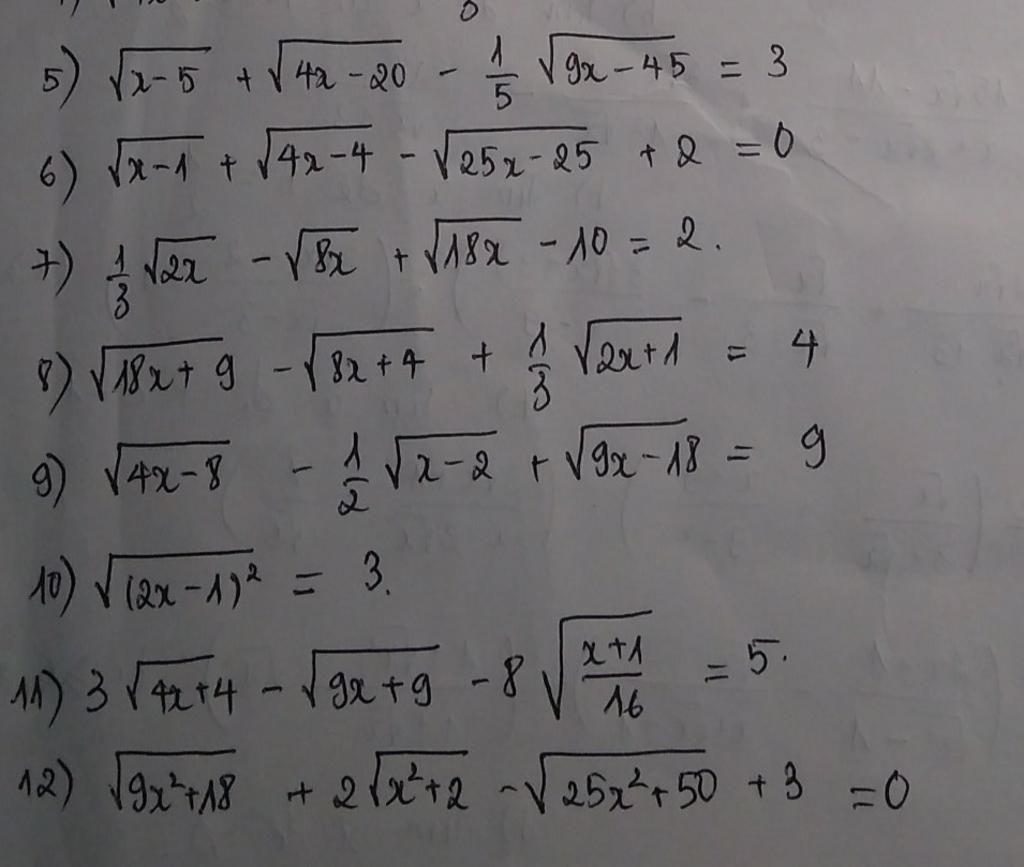 5) √(x-5) + √(4x-20) - 1/5 √(9x-45) = 3
6) √(x-1) + √(4x-4) - √(25x-25) + 2 = 0
7) 1/3 √(2x) - √(8x) + √(18x) - 10 = 2.
8) √(18x+9) - √(8x+4) + 1/3 √(2x+1) = 4
9) √(4x-8) - 1/2 √(x-2) + √(9x-18) = 9
10) √((2x-1)²) = 3.
11) 3 √(4x+4) - √(9x+9) - 8 √((x+1)/16) = 5.
12) √(9x²+18) + 2 √(x²+2) - √(25x²+50) + 3 = 0